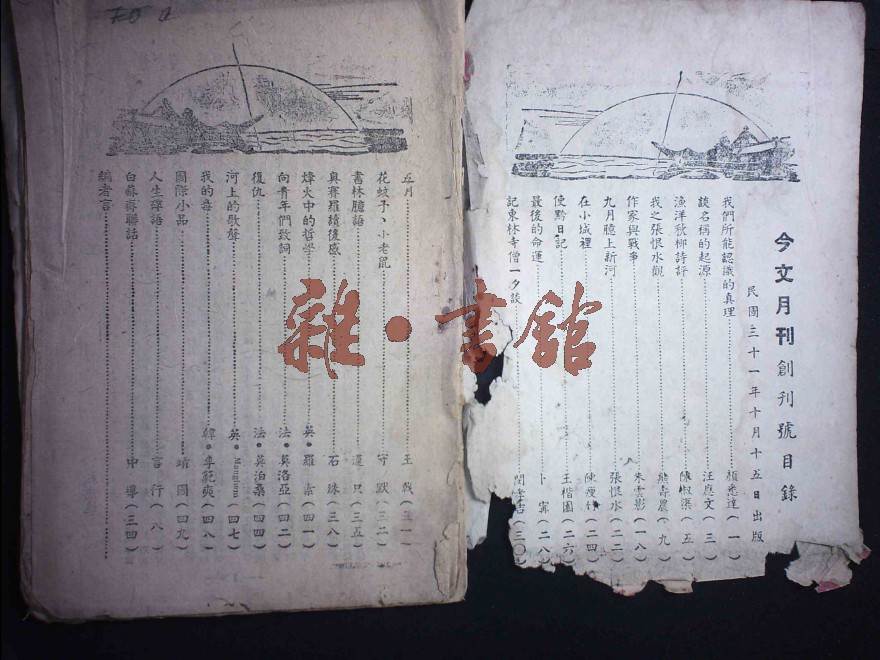 今文月刊創刊號目錄
民國三十一年十月十五日出版
我們所能認識的真理 顧惠達(一)
談名稱的起源 汪應文(三)
漁洋秋柳詩評 陳椒渠(五)
我之張恨水觀 熊壽農(九)
作家與戰事 朱雲影(一八)
九月臆上新河 張恨水(二二)
在小城裡 陳瘦竹(二四)
使黔日記 王楷園(二六)
最後的命運 卜甯(二八)
記東林寺僧一夕談 (三〇)
五月 王(三一)
花蚊子、小老鼠 守默(三二)
書林臆語 還只(三五)
奧賽羅續後感 石珠(三八)
烽火中的哲學 英•羅素(四一)
向青年們致詞 法•莫洛亞(四二)
復仇 法•莫泊桑(四四)
河上的歌聲 英•(四七)
我的音 韓•李範奭(四八)
國際小品 靖國(四九)
人生囈語 言行(八)
白蘇齋聯話 中導(三四)
編者言
雜•書館